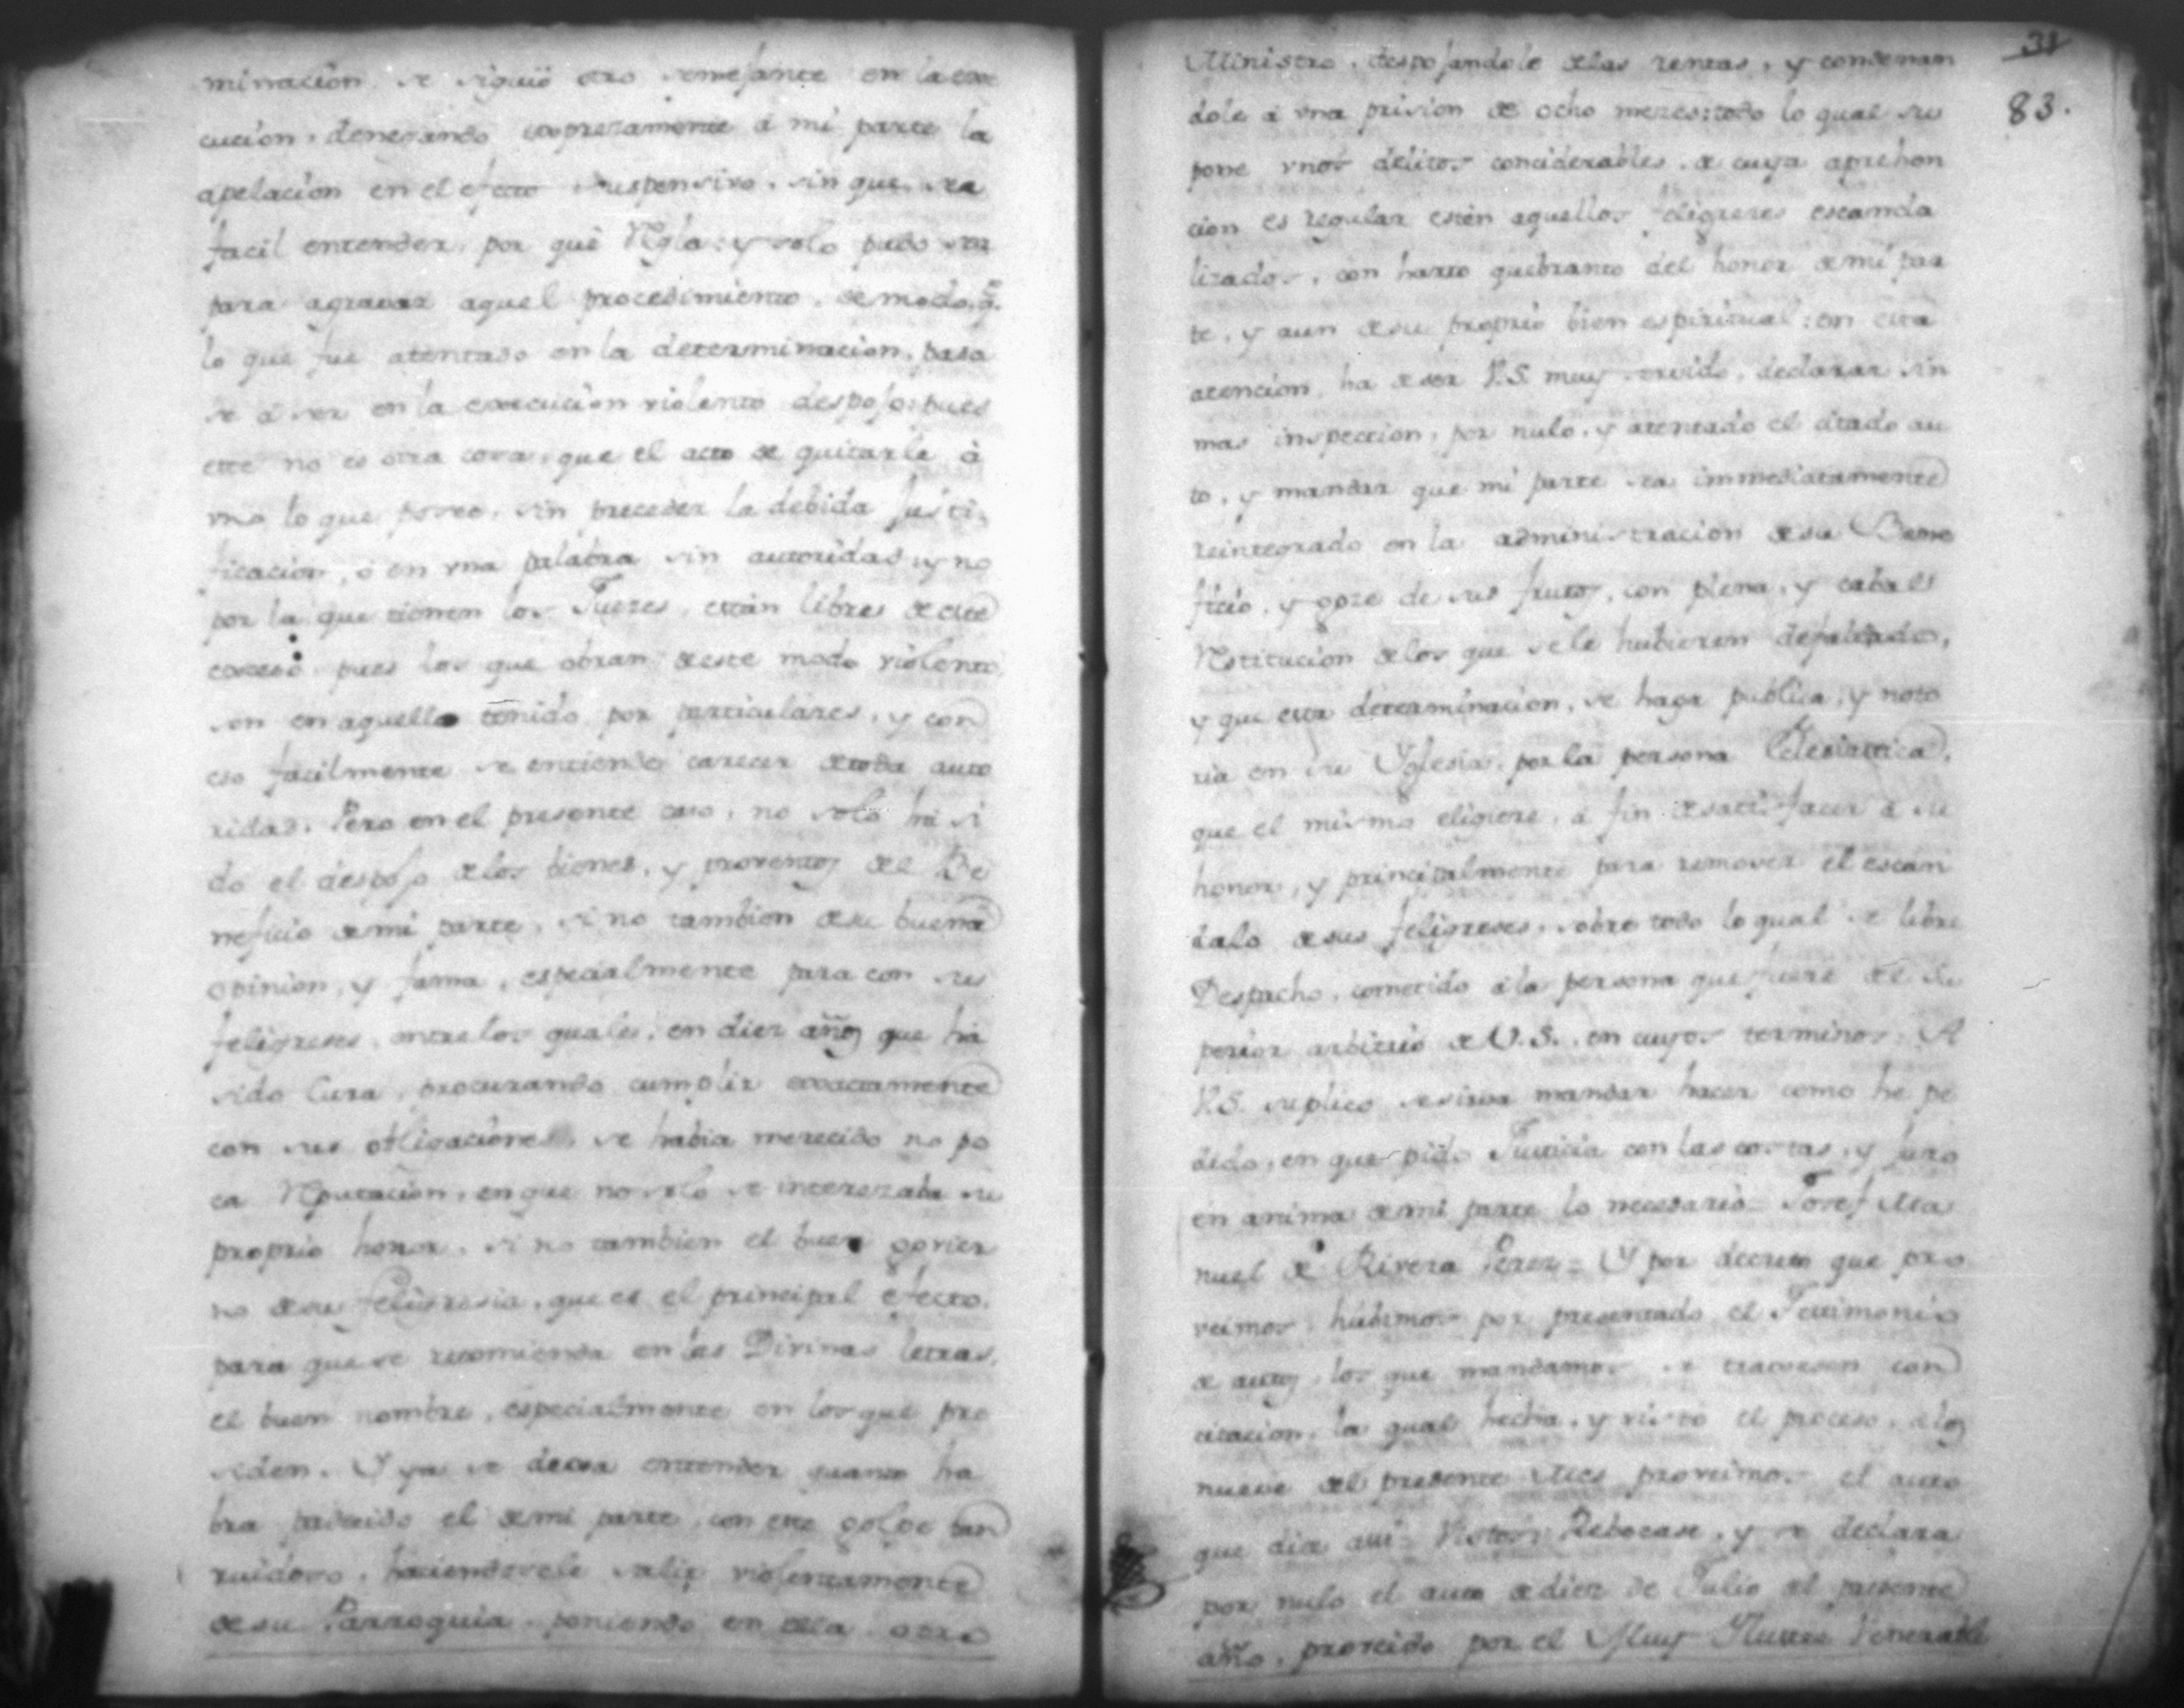 minacion se siguió otro semejante en la exe
cucion, denegando expresamente á mi parte la
apelacion en el efecto suspensivo, sin que sea
facil entender, por qué Regla: y solo pudo ser
para agravar aquel procedimiento, de modo, q.
lo que fue atentado en la determinacion, pasa
se á ser en la execucion violento despojo: pues
este no es otra cosa, que el acto de quitarle á
uno lo que posee, sin preceder la debida justi
ficacion, ó en vna palabra sin autoridad: y no
por la que tienen los Jueces, están libres de este
exceso: pues los que obran de este modo violento,
son en aquello tenido por particulares, y con
eso facilmente se entiende carecer de toda auto
ridad. Pero en el presente caso, no solo há si
do el despojo de los bienes, y proventos del Be
neficio de mi parte, si no tambien de su buena
opinion, y fama, especialmente para con sus
feligreses, entre los quales, en diez años que ha
sido Cura, procurando cumplir exactamente
con sus obligaciones, se habia merecido no po
ca Reputacion, en que no solo se interezaba su
proprio honor, si no tambien el buen govier
no de su feligresia, que es el principal efecto,
para que se recomienda en las Divinas letras,
el buen nombre, especialmente en los que pre
siden. Y ya se dexa entender quanto ha
bra padecido el de mi parte, con este golpe tan
ruidoso, haciendosele salir violentamente
de su Parroquia, poniendo en ella otro
31
83.
Ministro, despojandole de las rentas, y condenan
dole á vna prision de ocho mezes: todo lo qual su
pone vnos delitos conciderables, de cuya aprehen
cion es regular estén aquellos feligreses escanda
lizados, con harto quebranto del honor de mi par
te, y aun de su proprio bien espiritual: en esta
atencion, ha de ser V.S. muy servido, declarar sin
mas inspeccion, por nulo, y atentado el citado au
to, y mandar que mi parte sea immediatamente
reintegrado en la administracion de su Bene
ficio, y goze de sus frutos, con plena, y cabal
Restitucion de los que se le hubieren defalcado,
y que esta determinacion, se haga publica, y noto
ria en su Yglesia, por la persona Eclesiastica,
que el mismo eligiere, á fin de satisfacer á su
honor, y principalmente para remover el escan
dalo de sus feligreses, sobre todo lo qual se libre
Despacho, cometido á la persona que fuere del su
perior arbitrio de V.S. en cuyos terminos. A
V.S. suplico se sirva mandar hacer como he pe
dido, en que pido Justicia con las costas, y juro
en anima de mi parte lo necesario = Josef Ma
nuel de Rivera Perez = Y por decreto que pro
veimos, hubimos por presentado el Testimonio
de autos, los que mandamos se traxesen con
citacion, la qual hecha, y visto el proceso, á los
nueve del presente Mes proveimos el auto
que dize asi = Vistos: Rebocase, y se declara
por nulo el auto de diez de Julio del presente
año, proveido por el Muy Ylustre Venerable